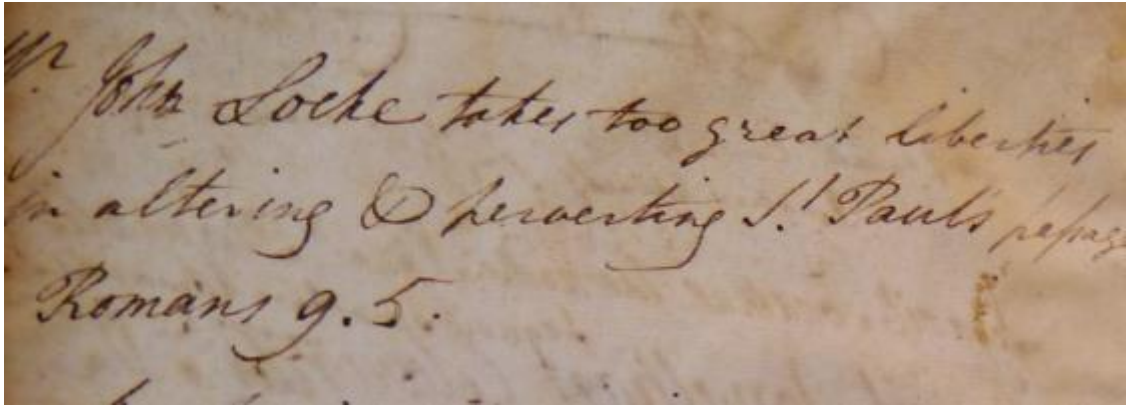 Mr. John Locke takes too great liberties
in altering & perverting St Pauls paſsage
Romans 9. 5.